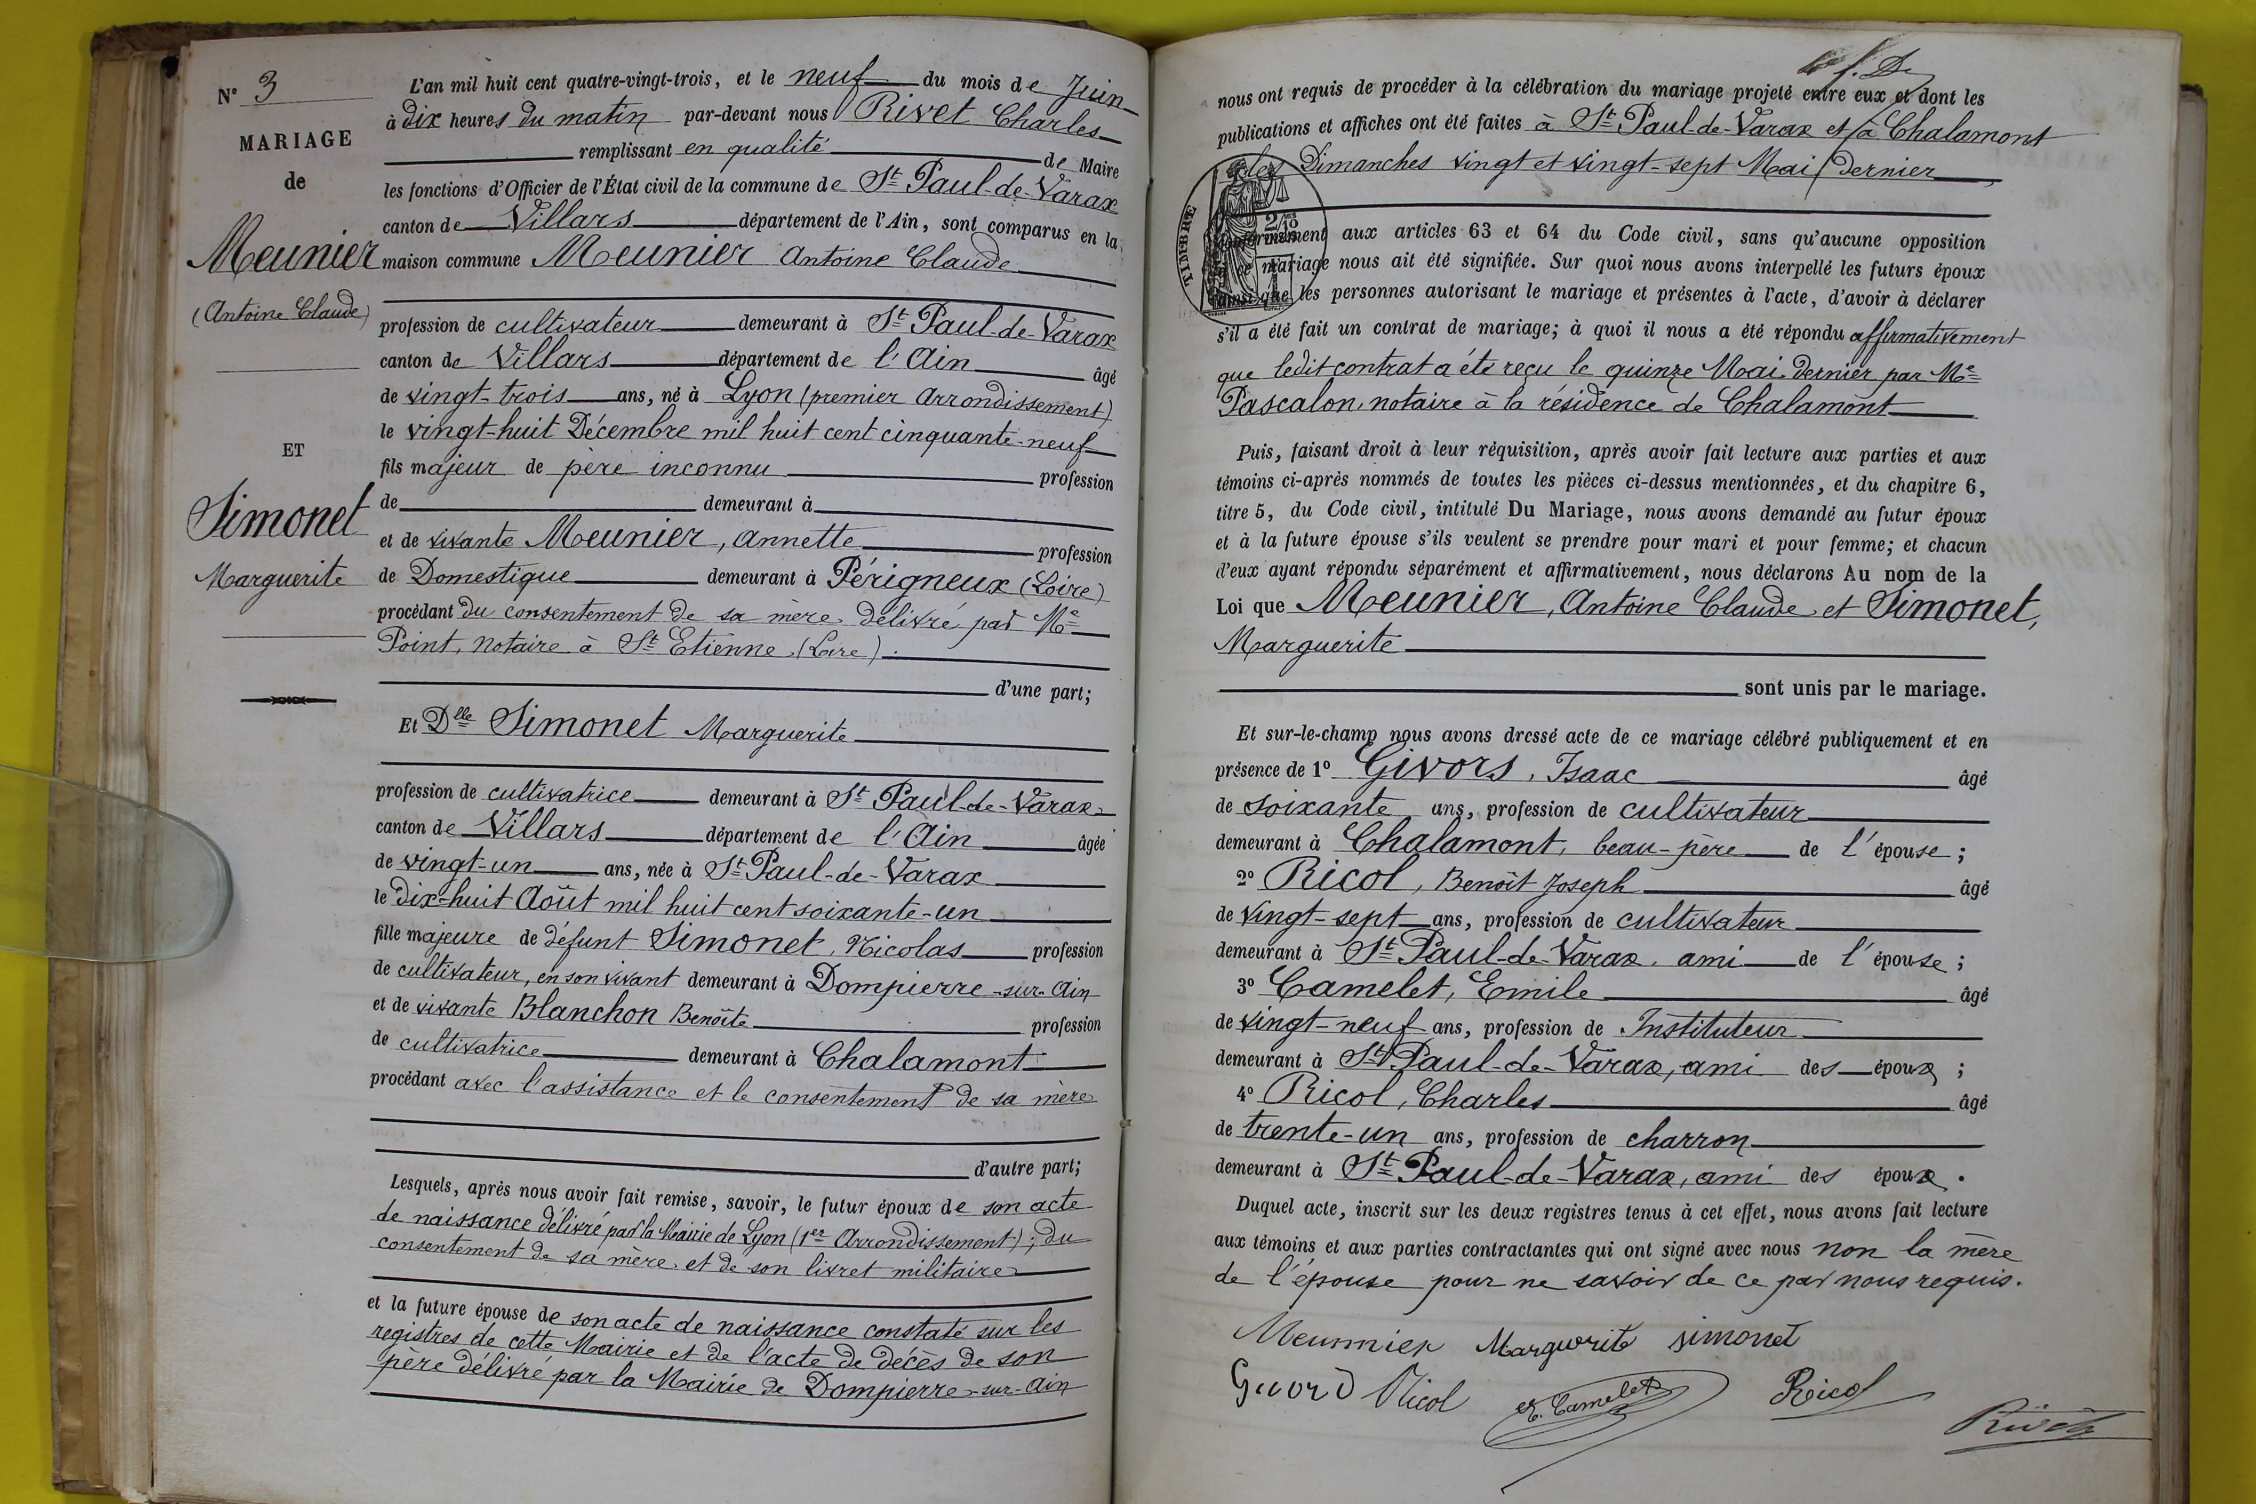 N° 3
MARIAGE
de
Meunier
(Antoine Claude)
ET
Simonet
Marguerite
L'an mil huit cent quatre-vingt-trois, et le neuf du mois de Juin
à dix heures du matin par-devant nous Rivet Charles
remplissant en qualité de Maire
les fonctions d'Officier de l'État civil de la commune de St Paul-de-Varax
canton de Villars département de l'Ain, sont comparus en la
maison commune Meunier Antoine Claude
profession de cultivateur demeurant à St Paul-de-Varax
canton de Villars département de l'Ain âgé
de vingt-trois ans, né à Lyon (premier Arrondissement)
le vingt-huit Décembre mil huit cent cinquante-neuf
fils majeur de père inconnu profession
de demeurant à
et de vivante Meunier, Annette profession
de Domestique demeurant à Périgneux (Loire)
procédant du consentement de sa mère délivré par Me
Point, notaire à St Etienne (Loire).
d'une part;
Et Dlle Simonet Marguerite
profession de cultivatrice demeurant à St Paul-de-Varax
canton de Villars département de l'Ain âgée
de vingt-un ans, née à St Paul-de-Varax
le dix-huit Août mil huit cent soixante-un
fille majeure de défunt Simonet, Nicolas profession
de cultivateur, en son vivant demeurant à Dompierre-sur-Ain
et de vivante Blanchon Benoîte profession
de cultivatrice demeurant à Chalamont
procédant avec l'assistance et le consentement de sa mère
d'autre part;
Lesquels, après nous avoir fait remise, savoir, le futur époux de son acte
de naissance délivré par la Mairie de Lyon (1er Arrondissement); du
consentement de sa mère et de son livret militaire
et la future épouse de son acte de naissance constaté sur les
registres de cette Mairie et de l'acte de décès de son
père délivré par la Mairie de Dompierre-sur-Ain
nous ont requis de procéder à la célébration du mariage projeté entre eux et dont les
publications et affiches ont été faites à St Paul-de-Varax et à Chalamont
les Dimanches vingt et vingt-sept Mai dernier
TIMBRE
conformément aux articles 63 et 64 du Code civil, sans qu'aucune opposition
à ce mariage nous ait été signifiée. Sur quoi nous avons interpellé les futurs époux
ainsi que les personnes autorisant le mariage et présentes à l'acte, d'avoir à déclarer
s'il a été fait un contrat de mariage; à quoi il nous a été répondu affirmativement
que ledit contrat a été reçu le quinze Mai dernier par Me
Pascalon, notaire à la résidence de Chalamont
Puis, faisant droit à leur réquisition, après avoir fait lecture aux parties et aux
témoins ci-après nommés de toutes les pièces ci-dessus mentionnées, et du chapitre 6,
titre 5, du Code civil, intitulé Du Mariage, nous avons demandé au futur époux
et à la future épouse s'ils veulent se prendre pour mari et pour femme; et chacun
d'eux ayant répondu séparément et affirmativement, nous déclarons Au nom de la
Loi que Meunier, Antoine Claude et Simonet,
Marguerite
sont unis par le mariage.
Et sur-le-champ nous avons dressé acte de ce mariage célébré publiquement et en
présence de 1° Givors, Isaac âgé
de soixante ans, profession de cultivateur
demeurant à Chalamont, beau-père de l'épouse;
2° Ricol, Benoît Joseph âgé
de vingt-sept ans, profession de cultivateur
demeurant à St Paul-de-Varax, ami de l'épouse;
3° Camelet, Emile âgé
de vingt-neuf ans, profession de Instituteur
demeurant à St Paul-de-Varax, ami des époux;
4° Ricol, Charles âgé
de trente-un ans, profession de charron
demeurant à St Paul-de-Varax, ami des époux.
Duquel acte, inscrit sur les deux registres tenus à cet effet, nous avons fait lecture
aux témoins et aux parties contractantes qui ont signé avec nous non la mère
de l'épouse pour ne savoir de ce par nous requis.
Meunnier Marguerite simonet
Ricol E. Camelet Ricol
Rivet